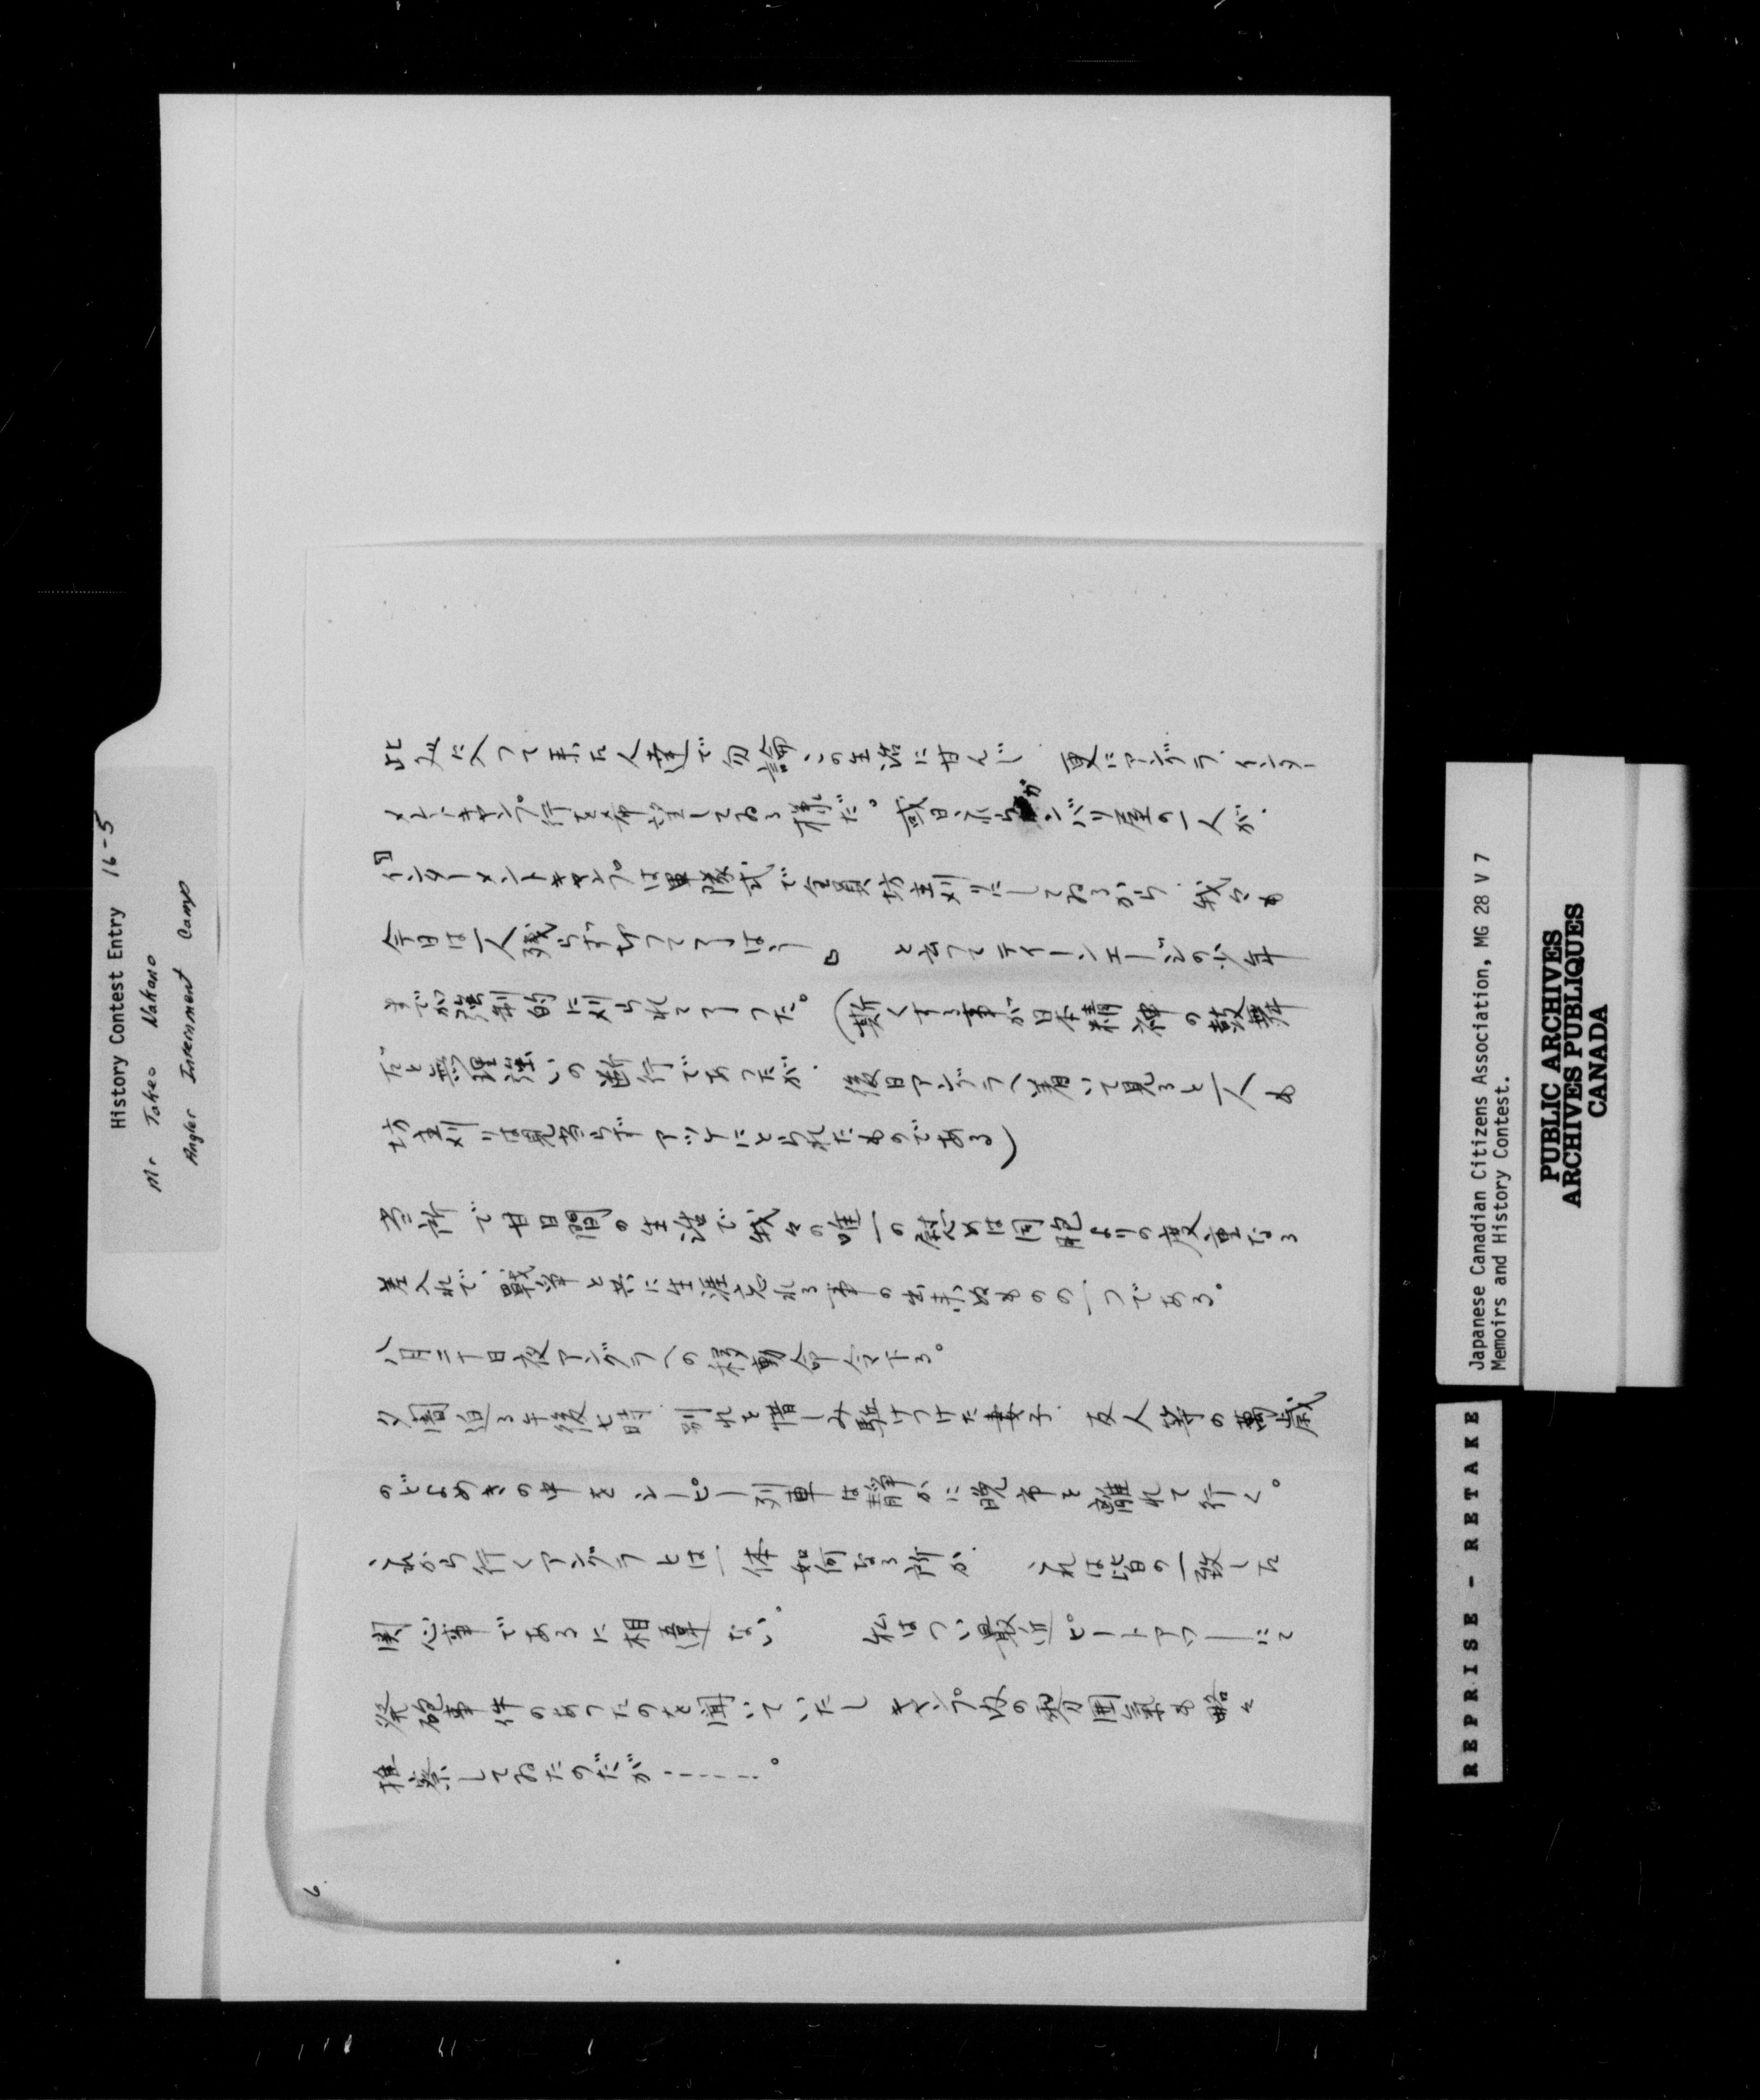 History Contest Entry 16-5
Mr Takeo Nakano
Angler Internment Camp
此処に入つて来た人達で勿論この生活に甘んじ 更にアングラ、インター
メントキャンプ行を希望してゐる様だ。或日 ガンバリ屋の一人が、
「インターメントキャンプは軍隊式で全員坊主刈りにしてゐるから 我々も
今日は一人残らず切つて了はう」 と云つてティーンエージの少年
までが強制的に刈られて了つた。(斯くする事が日本精神の鼓舞
だと無理強いの断行であつたが、後日アングラへ着いて見ると一人も
坊主刈りは見当らずアッケにとられたものである)
此所で廿日間の生活で我々の唯一の慰めは同胞よりの度重なる
差入れで、戦争と共に生涯忘れる事の出来ぬものの一つである。
八月二十日夜アングラへの移動命令下る。
夕闇迫る午後七時 別れを惜しみ駈けつけた妻子、友人等の萬歳
のどよめきの中をシーピー列車は静かに晩市を離れて行く。
これから行くアングラとは一体如何なる所か、これは皆の一致した
関心事であるに相違ない。 私はつい最近ピートアワーにて
発砲事件のあつたのを聞いていたし キャンプ内の雰囲気も略々
推察してゐたのだが……。
6.
Japanese Canadian Citizens Association, MG 28 V 7
Memoirs and History Contest.
PUBLIC ARCHIVES
ARCHIVES PUBLIQUES
CANADA
REPRISE - RETAKE